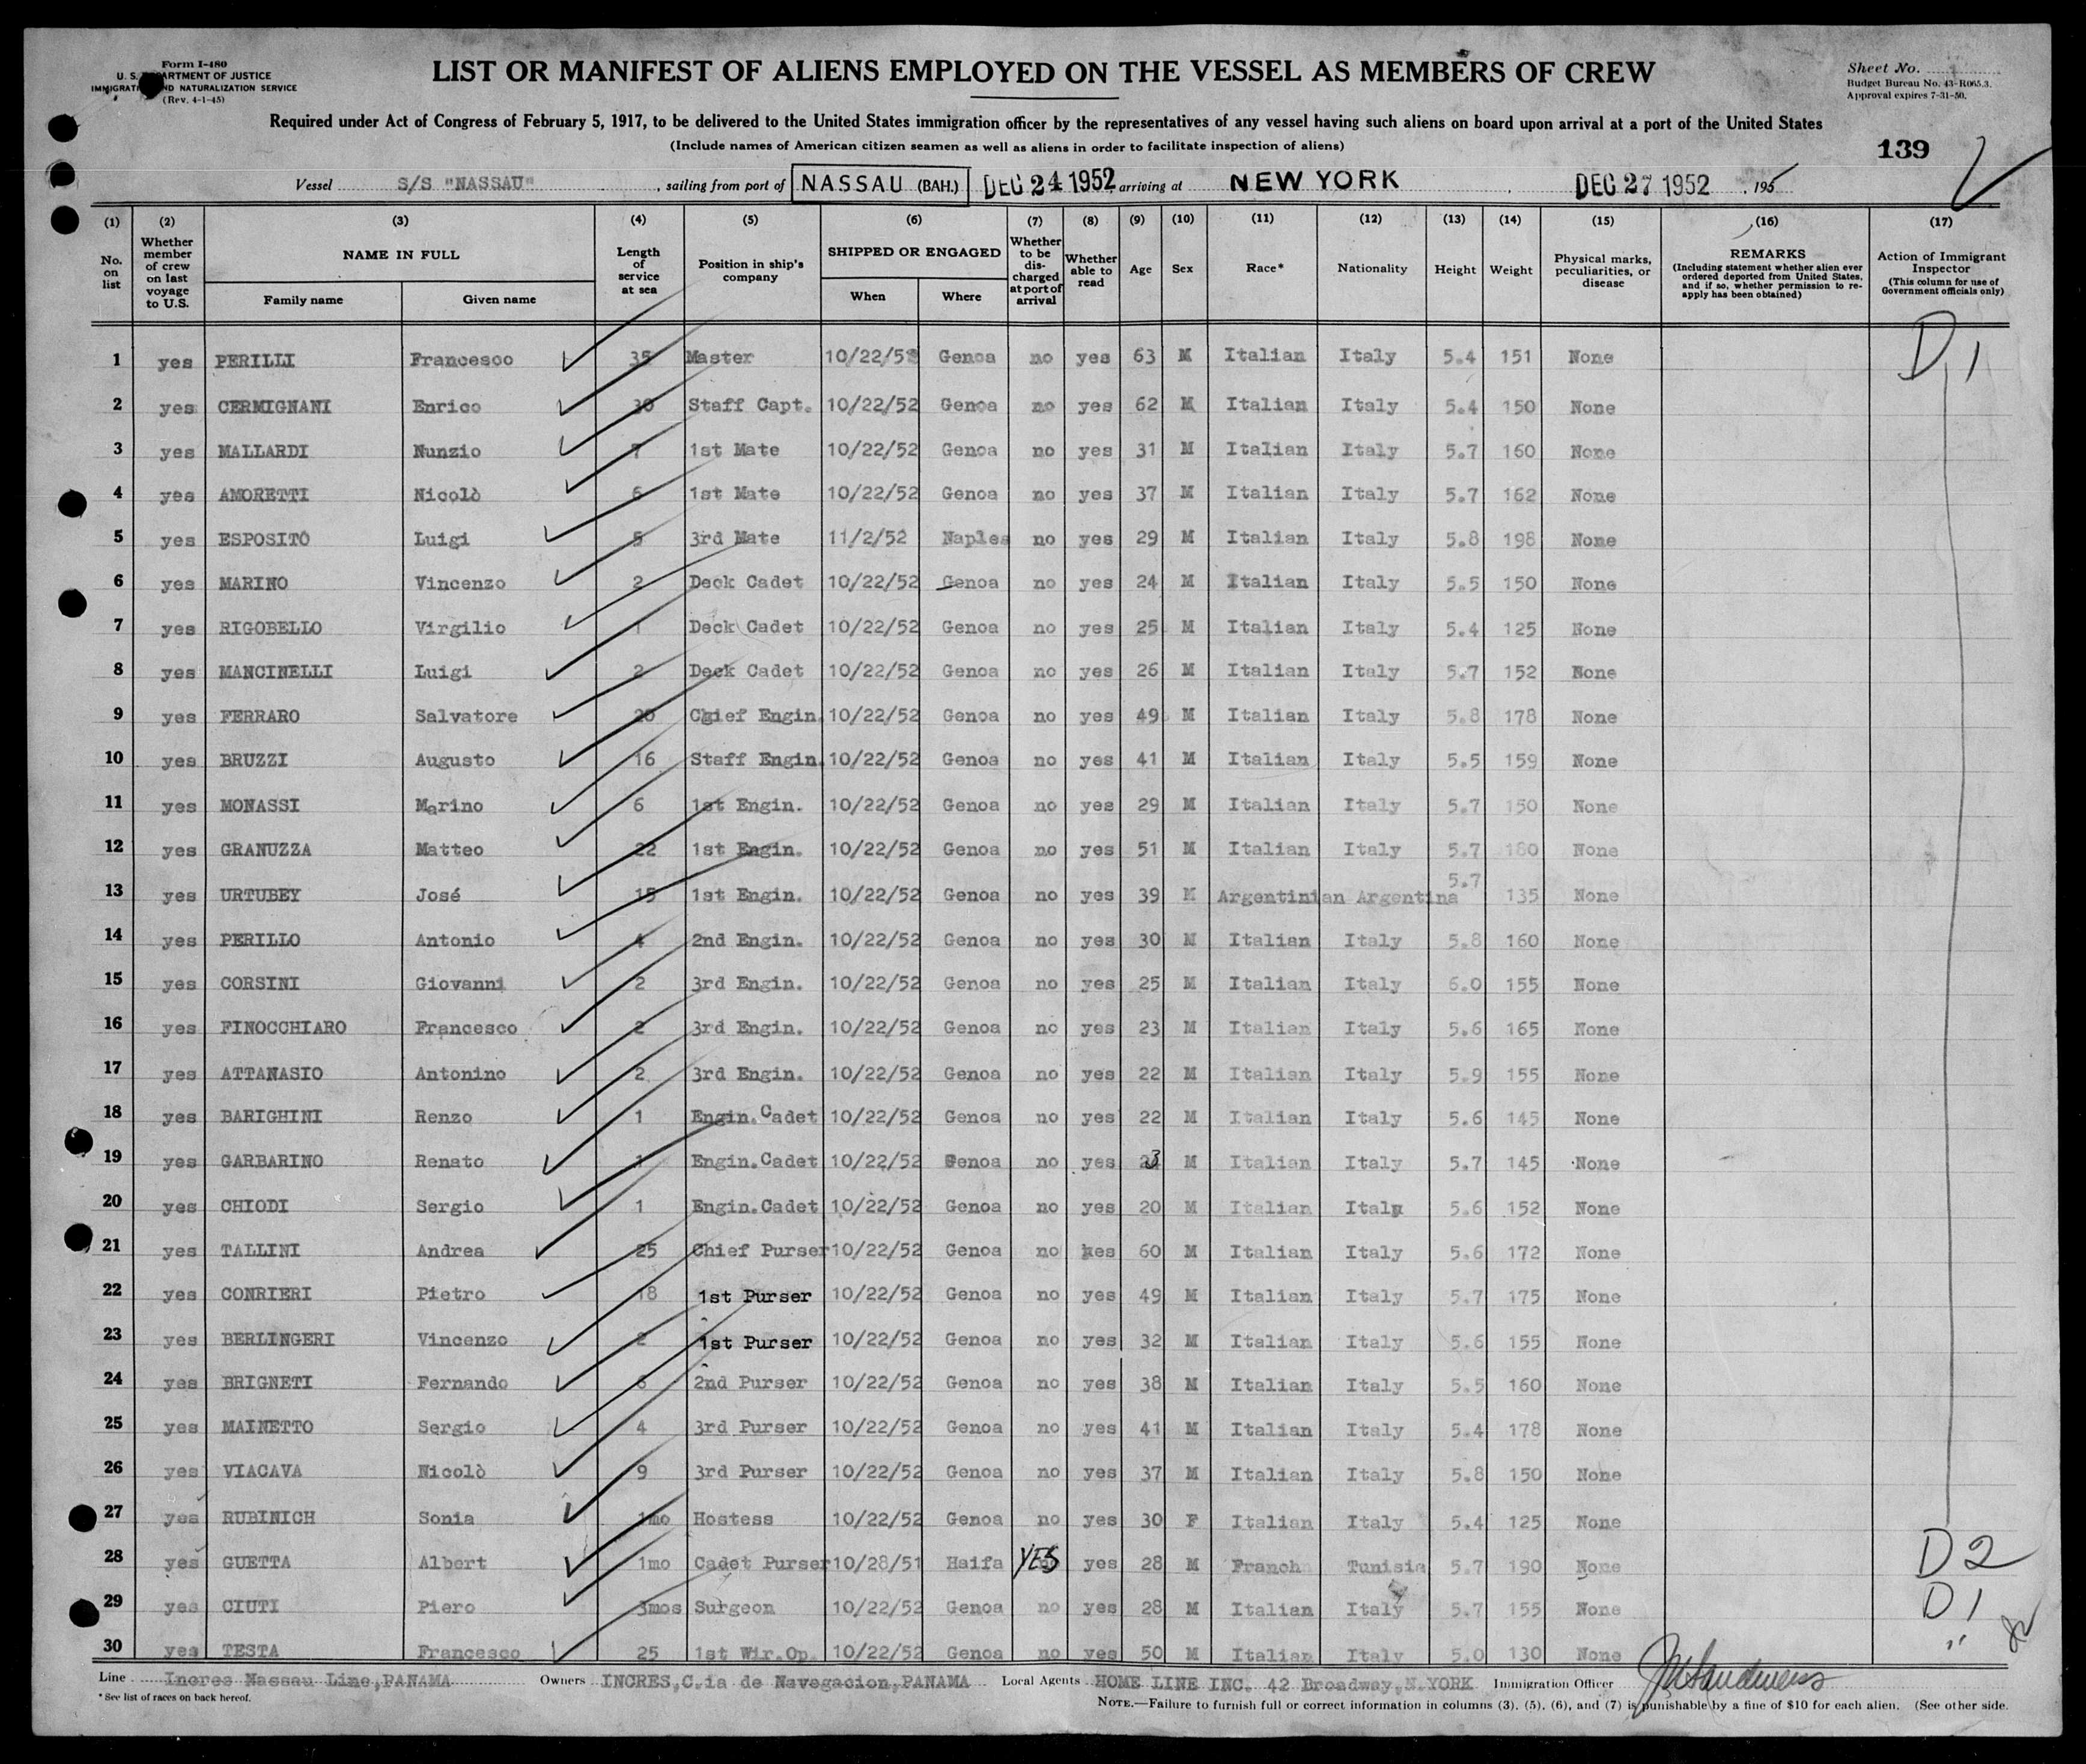 Form I-480
U. S. DEPARTMENT OF JUSTICE
IMMIGRATION AND NATURALIZATION SERVICE
(Rev. 4-1-45)
LIST OR MANIFEST OF ALIENS EMPLOYED ON THE VESSEL AS MEMBERS OF CREW
Sheet No.
Budget Bureau No. 43-R065.3.
Approval expires 7-31-50.
Required under Act of Congress of February 5, 1917, to be delivered to the United States immigration officer by the representatives of any vessel having such aliens on board upon arrival at a port of the United States
(Include names of American citizen seamen as well as aliens in order to facilitate inspection of aliens)
139
Vessel S/S "NASSAU", sailing from port of NASSAU (BAH.) DEC 24 1952 arriving at NEW YORK, DEC 27 1952, 195
(1) (2) (3) (4) (5) (6) (7) (8) (9) (10) (11) (12) (13) (14) (15) (16) (17)
No. on list
Whether member of crew on last voyage to U.S.
NAME IN FULL
Family name Given name
Length of service at sea
Position in ship's company
SHIPPED OR ENGAGED
When Where
Whether to be discharged at port of arrival
Whether able to read
Age
Sex
Race*
Nationality
Height
Weight
Physical marks, peculiarities, or disease
REMARKS
(Including statement whether alien ever ordered deported from United States, and if so, whether permission to re-apply has been obtained)
Action of Immigrant Inspector
(This column for use of Government officials only)
1 yes PERILLI Francesco 35 Master 10/22/52 Genoa no yes 63 M Italian Italy 5.4 151 None D 1
2 yes CERMIGNANI Enrico 30 Staff Capt. 10/22/52 Genoa no yes 62 M Italian Italy 5.4 150 None
3 yes MALLARDI Nunzio 7 1st Mate 10/22/52 Genoa no yes 31 M Italian Italy 5.7 160 None
4 yes AMORETTI Nicolò 6 1st Mate 10/22/52 Genoa no yes 37 M Italian Italy 5.7 162 None
5 yes ESPOSITO Luigi 5 3rd Mate 11/2/52 Naples no yes 29 M Italian Italy 5.8 198 None
6 yes MARINO Vincenzo 2 Deck Cadet 10/22/52 Genoa no yes 24 M Italian Italy 5.5 150 None
7 yes RIGOBELLO Virgilio 1 Deck Cadet 10/22/52 Genoa no yes 25 M Italian Italy 5.4 125 None
8 yes MANCINELLI Luigi 2 Deck Cadet 10/22/52 Genoa no yes 26 M Italian Italy 5.7 152 None
9 yes FERRARO Salvatore 20 Chief Engin. 10/22/52 Genoa no yes 49 M Italian Italy 5.8 178 None
10 yes BRUZZI Augusto 16 Staff Engin. 10/22/52 Genoa no yes 41 M Italian Italy 5.5 159 None
11 yes MONASSI Marino 6 1st Engin. 10/22/52 Genoa no yes 29 M Italian Italy 5.7 150 None
12 yes GRANUZZA Matteo 22 1st Engin. 10/22/52 Genoa no yes 51 M Italian Italy 5.7 180 None
13 yes URTUBEY José 15 1st Engin. 10/22/52 Genoa no yes 39 M Argentinian Argentina 5.7 135 None
14 yes PERILLO Antonio 4 2nd Engin. 10/22/52 Genoa no yes 30 M Italian Italy 5.8 160 None
15 yes CORSINI Giovanni 2 3rd Engin. 10/22/52 Genoa no yes 25 M Italian Italy 6.0 155 None
16 yes FINOCCHIARO Francesco 2 3rd Engin. 10/22/52 Genoa no yes 23 M Italian Italy 5.6 165 None
17 yes ATTANASIO Antonino 2 3rd Engin. 10/22/52 Genoa no yes 22 M Italian Italy 5.9 155 None
18 yes BARIGHINI Renzo 1 Engin. Cadet 10/22/52 Genoa no yes 22 M Italian Italy 5.6 145 None
19 yes GARBARINO Renato 1 Engin. Cadet 10/22/52 Genoa no yes 23 M Italian Italy 5.7 145 None
20 yes CHIODI Sergio 1 Engin. Cadet 10/22/52 Genoa no yes 20 M Italian Italy 5.6 152 None
21 yes TALLINI Andrea 25 Chief Purser 10/22/52 Genoa no kes 60 M Italian Italy 5.6 172 None
22 yes CONRIERI Pietro 18 1st Purser 10/22/52 Genoa no yes 49 M Italian Italy 5.7 175 None
23 yes BERLINGERI Vincenzo 2 1st Purser 10/22/52 Genoa no yes 32 M Italian Italy 5.6 155 None
24 yes BRIGNETI Fernando 6 2nd Purser 10/22/52 Genoa no yes 38 M Italian Italy 5.5 160 None
25 yes MAINETTO Sergio 4 3rd Purser 10/22/52 Genoa no yes 41 M Italian Italy 5.4 178 None
26 yes VIACAVA Nicolò 9 3rd Purser 10/22/52 Genoa no yes 37 M Italian Italy 5.8 150 None
27 yes RUBINICH Sonia 1mo Hostess 10/22/52 Genoa no yes 30 F Italian Italy 5.4 125 None
28 yes GUETTA Albert 1mo Cadet Purser 10/28/51 Haifa YES yes 28 M Franch Tunisia 5.7 190 None D 2
29 yes CIUTI Piero 3mos Surgeon 10/22/52 Genoa no yes 28 M Italian Italy 5.7 155 None D 1
30 yes TESTA Francesco 25 1st Wir.Op. 10/22/52 Genoa no yes 50 M Italian Italy 5.0 130 None "
Line Incres Nassau Line,PANAMA Owners INCRES,C.ia de Navegacion,PANAMA Local Agents HOME LINE INC. 42 Broadway,N.YORK Immigration Officer
* See list of races on back hereof.
NOTE.—Failure to furnish full or correct information in columns (3), (5), (6), and (7) is punishable by a fine of $10 for each alien. (See other side.